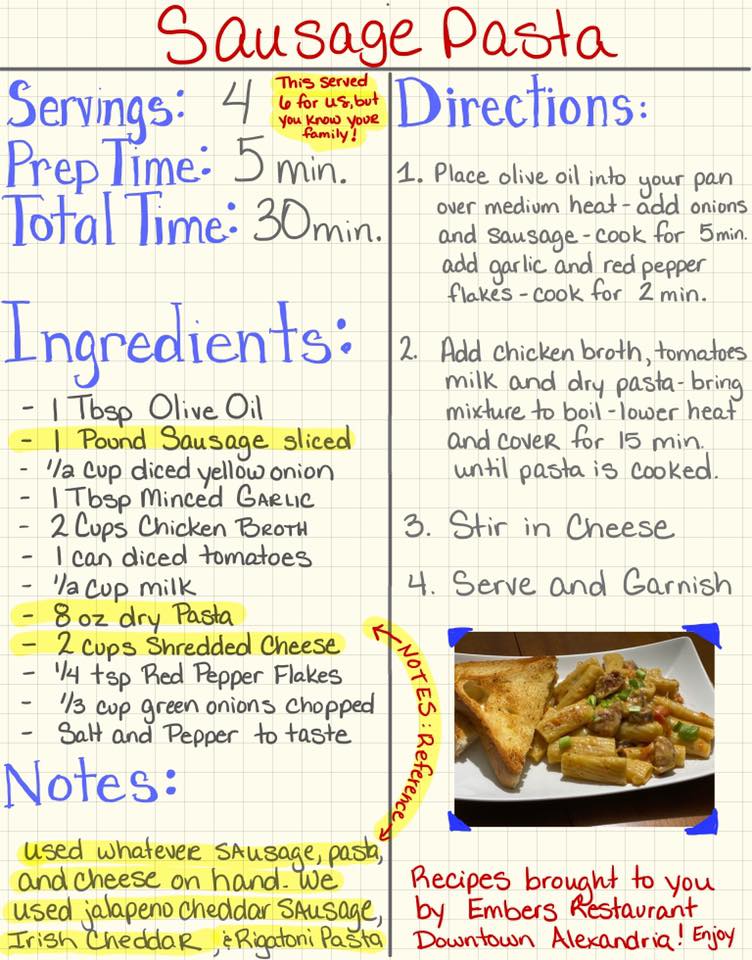 Sausage Pasta
Servings: 4
This served
6 for us, but
you know your
family!
Prep Time: 5 min.
Total Time: 30 min.
Ingredients:
- 1 Tbsp Olive Oil
- 1 Pound Sausage sliced
- 1/2 cup diced yellow onion
- 1 Tbsp Minced Garlic
- 2 Cups Chicken Broth
- 1 can diced tomatoes
- 1/2 cup milk
- 8 oz dry Pasta
- 2 cups Shredded Cheese
- 1/4 tsp Red Pepper Flakes
- 1/3 cup green onions chopped
- Salt and Pepper to taste
NOTES: Reference
Notes:
used whatever sausage, pasta,
and cheese on hand. We
used jalapeno cheddar sausage,
Irish Cheddar, & Rigatoni Pasta
Directions:
1. Place olive oil into your pan
over medium heat - add onions
and sausage - cook for 5 min.
add garlic and red pepper
flakes - cook for 2 min.
2. Add chicken broth, tomatoes
milk and dry pasta - bring
mixture to boil - lower heat
and cover for 15 min.
until pasta is cooked.
3. Stir in Cheese
4. Serve and Garnish
Recipes brought to you
by Embers Restaurant
Downtown Alexandria! Enjoy